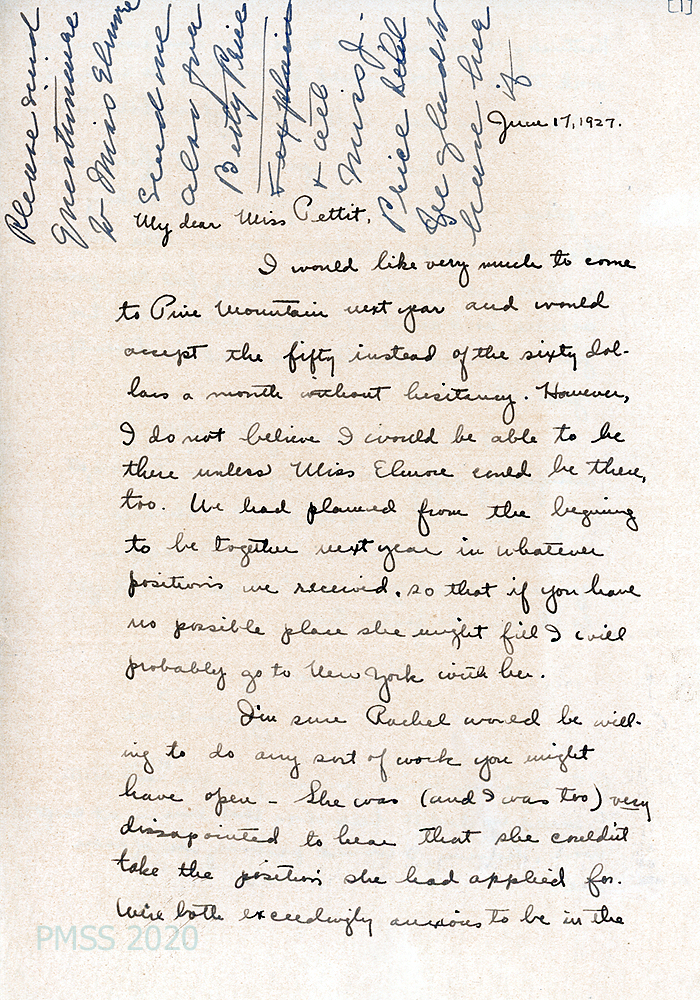 [1]
Please send
Questionnaire
to Miss Elmore
Send me
also for
Betty Price
Explain
+ tell
Miss J.
Price I'll
be glad to
have her
if
June 17, 1927.
My dear Miss Pettit,
I would like very much to come
to Pine Mountain next year and would
accept the fifty instead of the sixty dol-
lars a month without hesitancy. However,
I do not believe I would be able to be
there unless Miss Elmore could be there,
too. We had planned from the begining
to be together next year in whatever
positions we received, so that if you have
no possible place she might fill I will
probably go to New York with her.
I'm sure Rachel would be will-
ing to do any sort of work you might
have open - She was (and I was too) very
dissapointed to hear that she couldn't
take the position she had applied for.
We're both exceedingly anxious to be in the
PMSS 2020